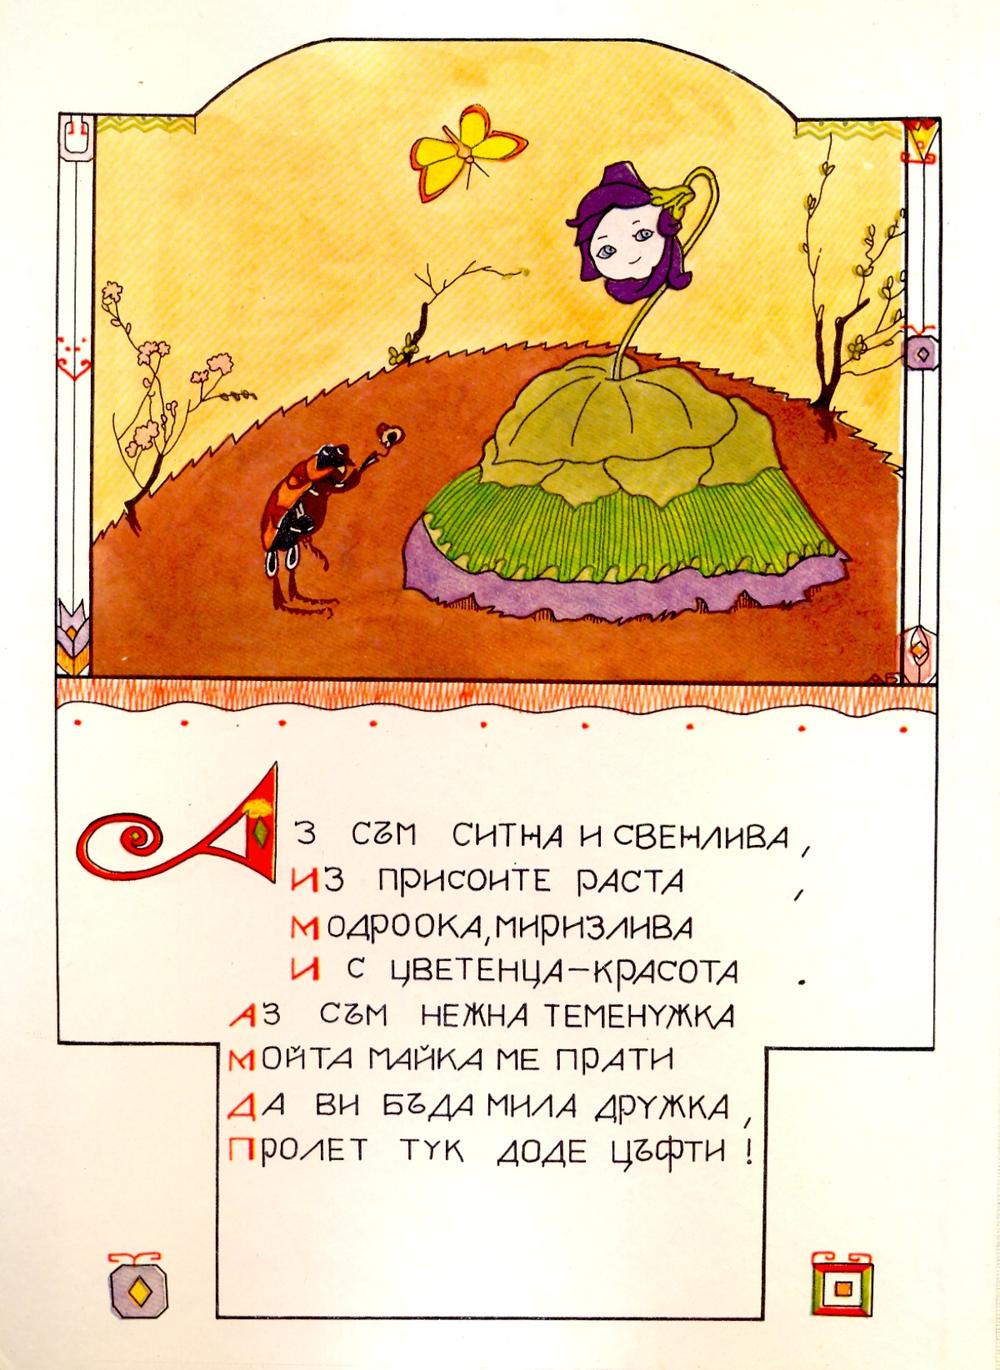 АБ
Аз съм ситна и свенлива,
из присоите раста,
модроока, миризлива
и с цветенца-красота.
Аз съм нежна теменужка
мойта майка ме прати
да ви бъда мила дружка,
пролет тук доде цъфти!